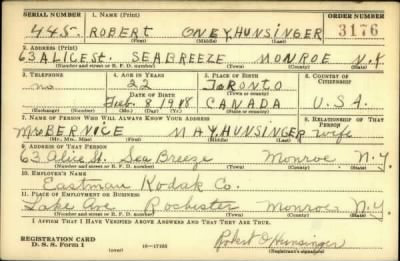 SERIAL NUMBER 1. NAME (Print) ORDER NUMBER
445. ROBERT ONEY, HUNSINGER 3176
(First) (Middle) (Last)
2. ADDRESS (Print)
63 ALICE St. SEABREEZE MONROE N.Y.
(Number and street or R. F. D. number) (Town) (County) (State)
3. TELEPHONE 4. AGE IN YEARS 5. PLACE OF BIRTH 6. COUNTRY OF CITIZENSHIP
no 22 TORONTO
DATE OF BIRTH (Town or county)
Feb. 8, 1918 CANADA U.S.A.
(Exchange) (Number) (Mo.) (Day) (Yr.) (State or country)
7. NAME OF PERSON WHO WILL ALWAYS KNOW YOUR ADDRESS 8. RELATIONSHIP OF THAT PERSON
Mrs BERNICE MAY, HUNSINGER wife
(Mr., Mrs., Miss) (First) (Middle) (Last)
9. ADDRESS OF THAT PERSON
63 Alice St. Sea Breeze Monroe N.Y.
(Number and street or R. F. D. number) (Town) (County) (State)
10. EMPLOYER'S NAME
Eastman Kodak Co.
11. PLACE OF EMPLOYMENT OR BUSINESS
Lake Ave Rochester Monroe N.Y.
(Number and street or R. F. D. number) (Town) (County) (State)
I AFFIRM THAT I HAVE VERIFIED ABOVE ANSWERS AND THAT THEY ARE TRUE.
REGISTRATION CARD
D. S. S. Form 1 (over) Robert O Hunsinger
(Registrant's signature)